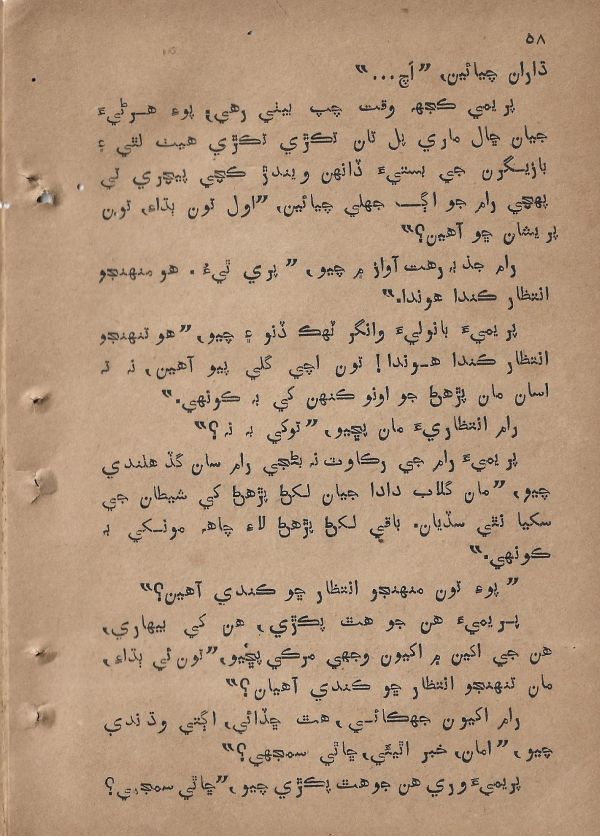 ٥٨
ڌاران چيائين، ”اَچ...“
پريمي ڪجھ وقت چپ بيٺي رهي، پوءِ هرڻيءَ
جيان ڇال ماري پل تان تڪڙي تڪڙي هيٺ لٿي ۽
بازيگرن جي بستيءَ ڏانهن ويندڙ ڪچي پيچري تي
پهچي رام جو اڳ جهلي چيائين، ”اول تون ٻڌاءِ، تون
پريشان ڇو آهين؟“
رام جذبہ رهت آواز ۾ چيو، ”پري ٿيءُ. هو منهنجو
انتظار ڪندا هوندا.“
پريميءَ بانوليءَ وانگر ٽهڪ ڏنو ۽ چيو، ”هو تنهنجو
انتظار ڪندا هوندا! تون اچي گلي پيو آهين، نہ تہ
اسان مان پڙهڻ جو اونو ڪنهن کي بہ ڪونهي.“
رام انتظاريءَ مان پڇيو، ”توکي بہ نہ؟“
پريميءَ رام جي رڪاوٽ نہ بڻجي رام سان گڏ هلندي
چيو، ”مان گلاب دادا جيان لکڻ پڙهڻ کي شيطان جي
سکيا نٿي سڏيان. باقي لکڻ پڙهڻ لاءِ چاھہ مونکي بہ
ڪونهي.“
”پوءِ تون منهنجو انتظار ڇو ڪندي آهين؟“
پريميءَ هن جو هٿ پڪڙي، هن کي بيهاري،
هن جي اکين ۾ اکيون وجهي مرڪي پڇيو، ”تون ئي ٻڌاءِ،
مان تنهنجو انتظار ڇو ڪندي آهيان؟“
رام اکيون جهڪائي، هٿ ڇڏائي، اڳتي وڌندي
چيو، ”امان، خبر اٿيئي، ڇا ٿي سمجهي؟“
پريميءَ وري هن جو هٿ پڪڙي چيو، ”ڇا ٿي سمجهي؟